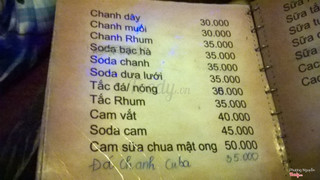 Chanh dây 30.000
Chanh muối 30.000
Chanh Rhum 35.000
Soda bạc hà 35.000
Soda chanh 35.000
Soda dưa lưới 35.000
Tắc đá/ nóng 30.000
Tắc Rhum 35.000
Cam vắt 40.000
Soda cam 45.000
Cam sữa chua mật ong 50.000
Đá chanh Cuba 35.000
Sữa
Sữa tắ
Sữa
Sữa
Cac
Cac